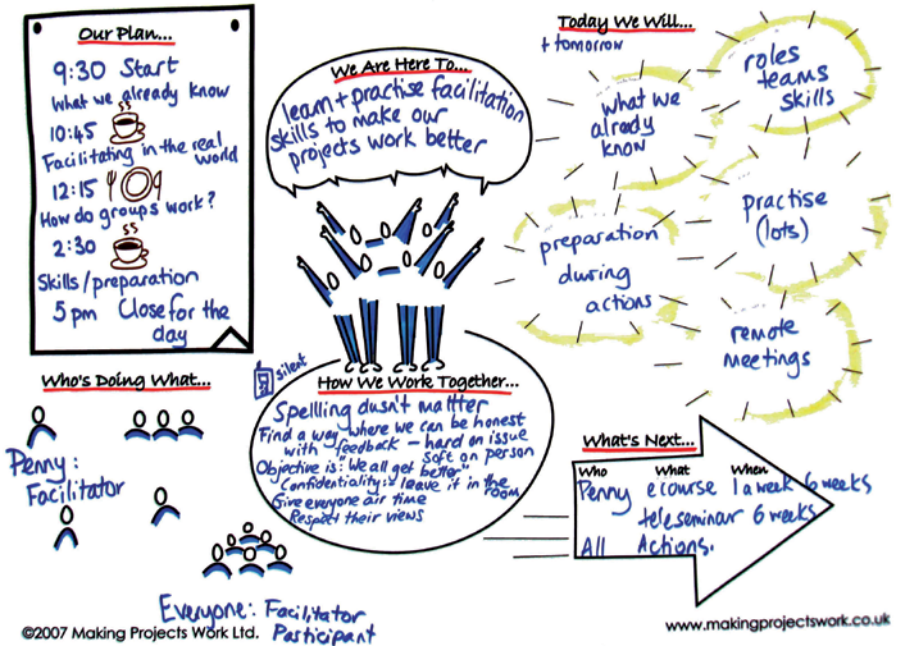 Our Plan...
9:30 Start
What we already know
10:45
Facilitating in the real
world
12:15
How do groups work?
2:30
Skills/preparation
5pm Close for the
day
We Are Here To...
learn + practise facilitation
skills to make our
projects work better
Today We Will...
+ tomorrow
what we
already
know
roles
teams
skills
preparation
during
actions
practise
(lots)
remote
meetings
Who's Doing What...
Penny:
Facilitator
Everyone: Facilitator
Participant
silent
How We Work Together...
Spelling dusn't mattter
Find a way where we can be honest
with feedback - hard on issue
soft on person
Objective is: "We all get better"
Confidentiality: leave it in the
room
Give everyone air time
Respect their views
What's Next...
Who What When
Penny ecourse 1 a week 6 weeks
teleseminar 6 weeks
All Actions.
©2007 Making Projects Work Ltd.
www.makingprojectswork.co.uk